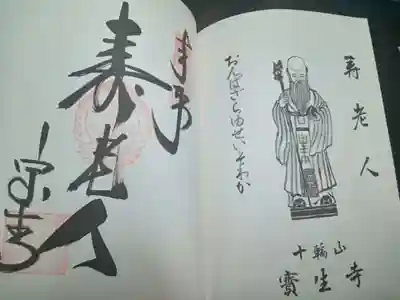 寿老人
おんばざらゆせいそわか
十輪山
寶生寺
奉拝
寿老人